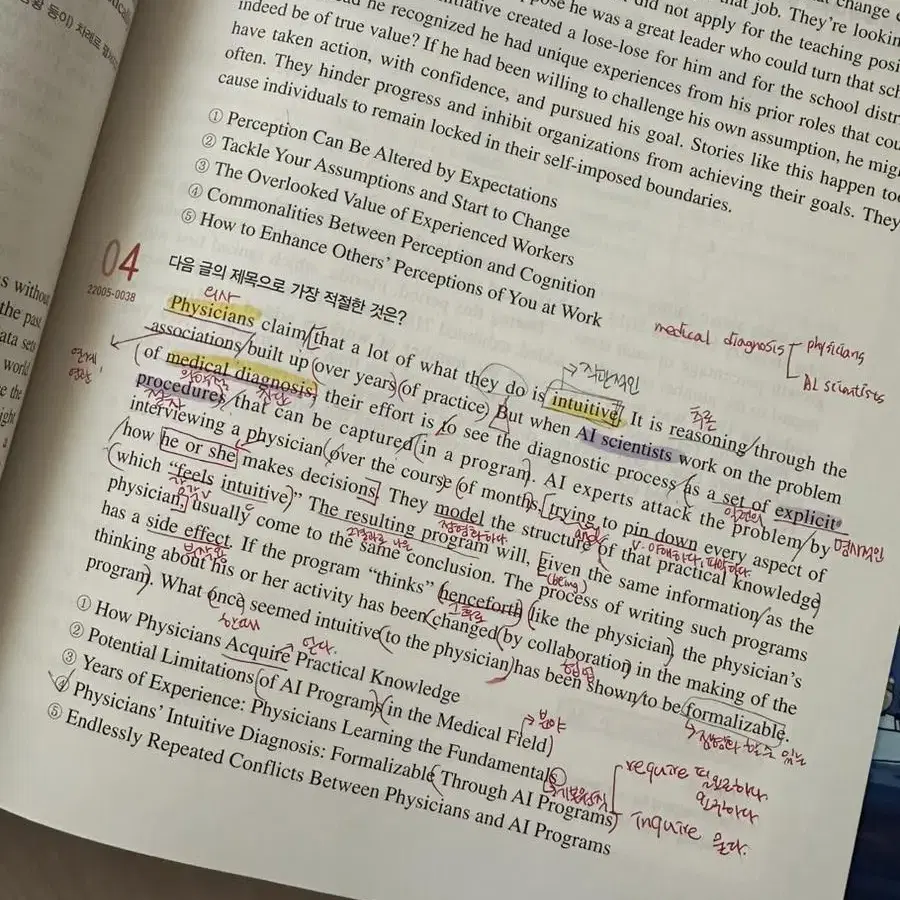 did not apply for the teaching posi
that job. They're lookin
change
he recognized he had unique experiences from his prior roles that cou
indeed be of true value? If he had been willing to challenge his own assumption, he mig
initiative created a lose-lose for him and for the school distr
pose he was a great leader who could turn that sch
have taken action, with confidence, and pursued his goal. Stories like this happen too
often. They hinder progress and inhibit organizations from achieving their goals. They
cause individuals to remain locked in their self-imposed boundaries.
① Perception Can Be Altered by Expectations
② Tackle Your Assumptions and Start to Change
③ The Overlooked Value of Experienced Workers
④ Commonalities Between Perception and Cognition
⑤ How to Enhance Others' Perceptions of You at Work
s without
the past
ata sets
world
e the
ight
04
22005-0038
다음 글의 제목으로 가장 적절한 것은?
의사
medical diagnosis
physicians
AI scientists
Physicians claim that a lot of what they do is intuitive. It is reasoning through the
직관적인
추론
associations built up over years of practice. But when AI scientists work on the problem
of medical diagnosis, their effort is to see the diagnostic process as a set of explicit
명시적인
진단
절차
procedures that can be captured in a program. AI experts attack the problem by
interviewing a physician over the course of months, trying to pin down every aspect of
how he or she makes decisions. They model the structure of that practical knowledge
(which "feels intuitive)" The resulting program will, given the same information as the
(being)
physician, usually come to the same conclusion. The process of writing such programs
has a side effect. If the program "thinks" henceforth like the physician, the physician's
thinking about his or her activity has been changed by collaboration in the making of the
협업
program. What once seemed intuitive to the physician has been shown to be formalizable.
한때
① How Physicians Acquire Practical Knowledge
얻다.
② Potential Limitations of AI Programs in the Medical Field
분야
③ Years of Experience: Physicians Learning the Fundamentals
④ Physicians' Intuitive Diagnosis: Formalizable Through AI Programs
⑤ Endlessly Repeated Conflicts Between Physicians and AI Programs
require 필요하다.
요구하다
inquire 묻다.